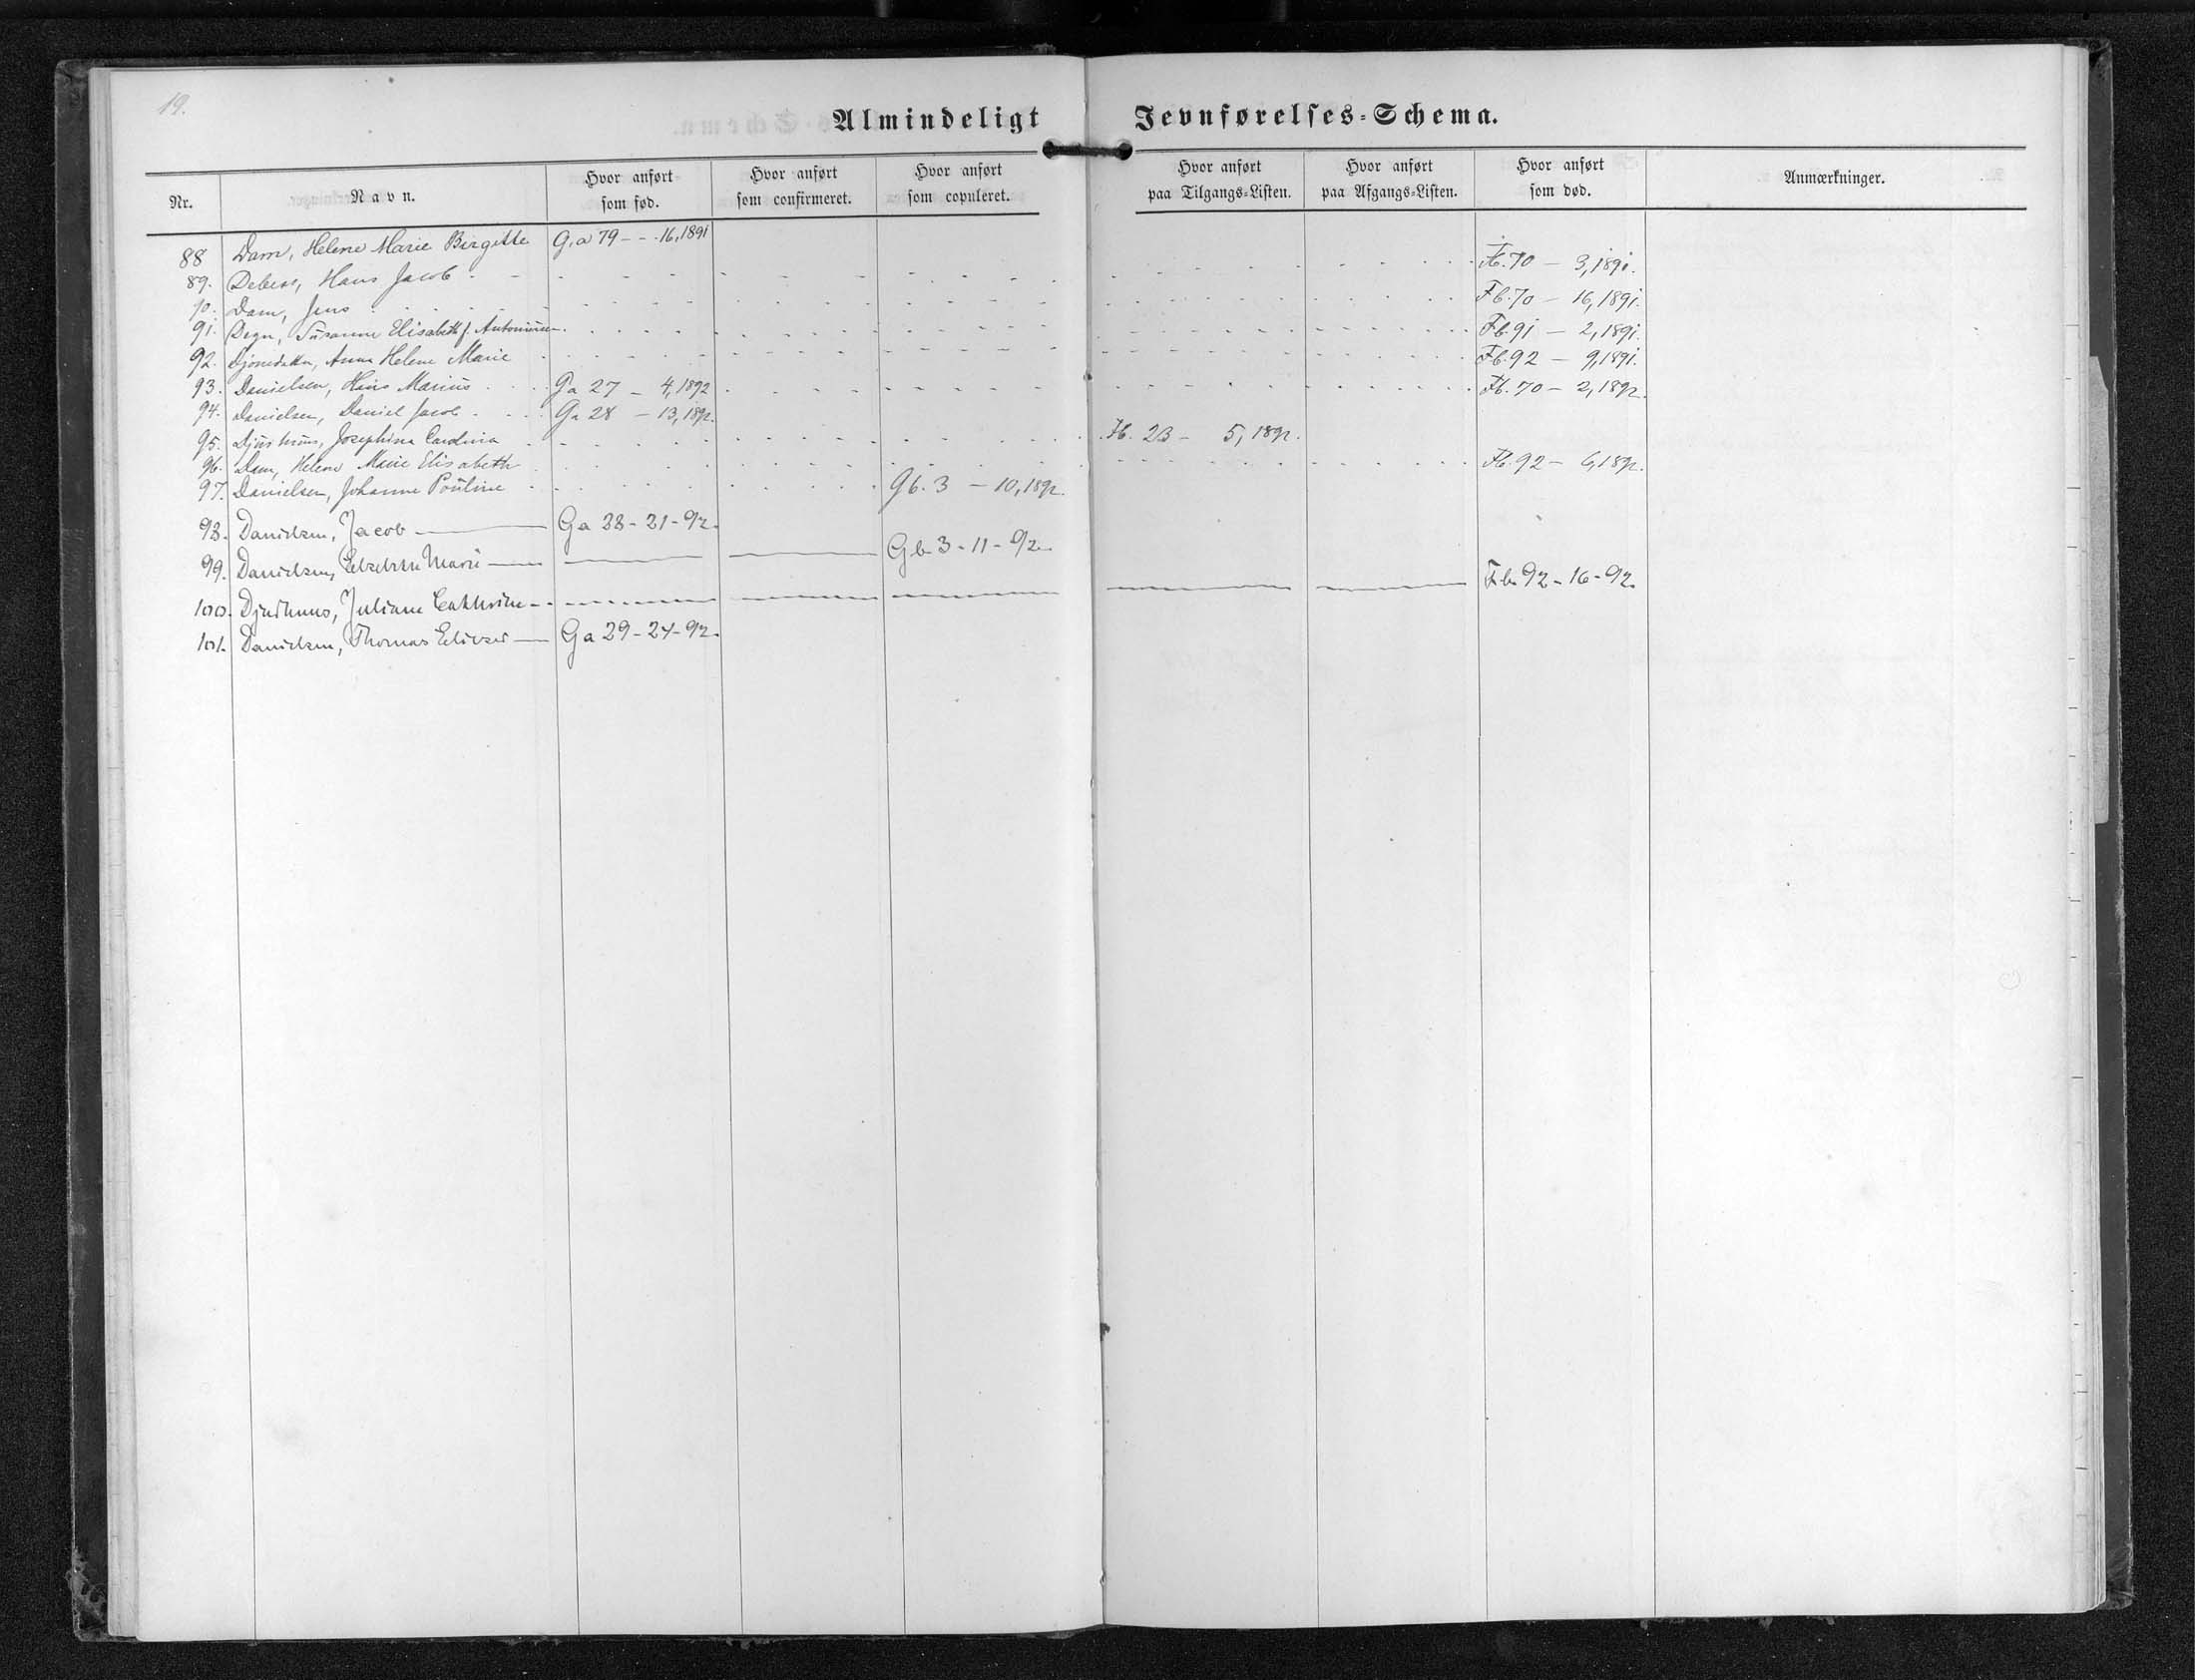 19.
Almindeligt Jevnførelses-Schema.
Nr. Navn. Hvor anført som fød. Hvor anført som confirmeret. Hvor anført som copuleret. Hvor anført paa Tilgangs-Listen. Hvor anført paa Afgangs-Listen. Hvor anført som død. Anmærkninger.
88 Dam, Helene Marie Birgitte G,a 79 - - 16,1891
89. Debess, Hans Jacob Fb. 70 - 3,1891.
90. Dam, Jens Fb. 70 - 16,1891.
91. Degn, Susanne Elisabeth f. Fb. 91 - 2,1891.
92. Anna Helene Marie Fb. 92 - 9,1891.
93. Danielsen, Hans Marius Ga 27 - 4,1892 Fb. 70 - 2,1892.
94. Danielsen, Daniel Jacob Ga 28 - 13,1892.
95. Djurhuus, Josephine Cardina Fb. 23 - 5,1892.
96. Dam, Helene Marie Elisabeth Fb. 92 - 6,1892.
97. Danielsen, Johanne Pouline Gb. 3 - 10,1892.
98. Danielsen, Jacob Ga 28 - 21 - 92.
99. Danielsen, Marie Gb 3 - 11 - 92
100. Djurhuus, Juliane Cathrine Fb 92 - 16 - 92.
101. Danielsen, Thomas Ga 29 - 24 - 92.